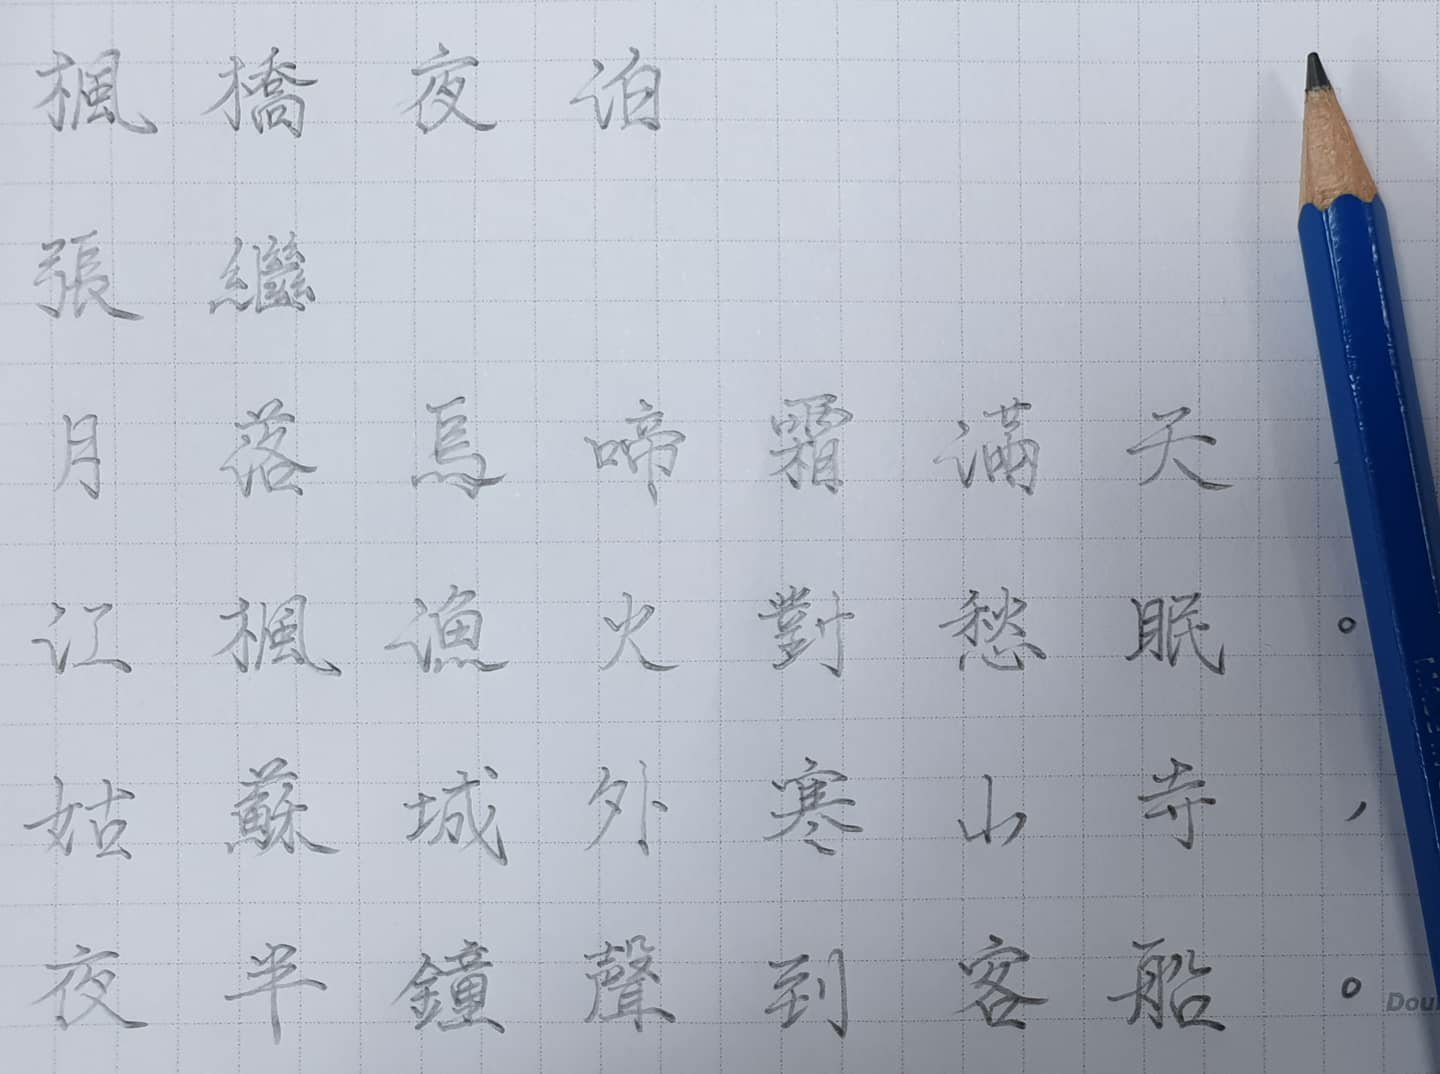 楓橋夜泊
張繼
月落烏啼霜滿天
江楓漁火對愁眠。
姑蘇城外寒山寺，
夜半鐘聲到客船。
Dou